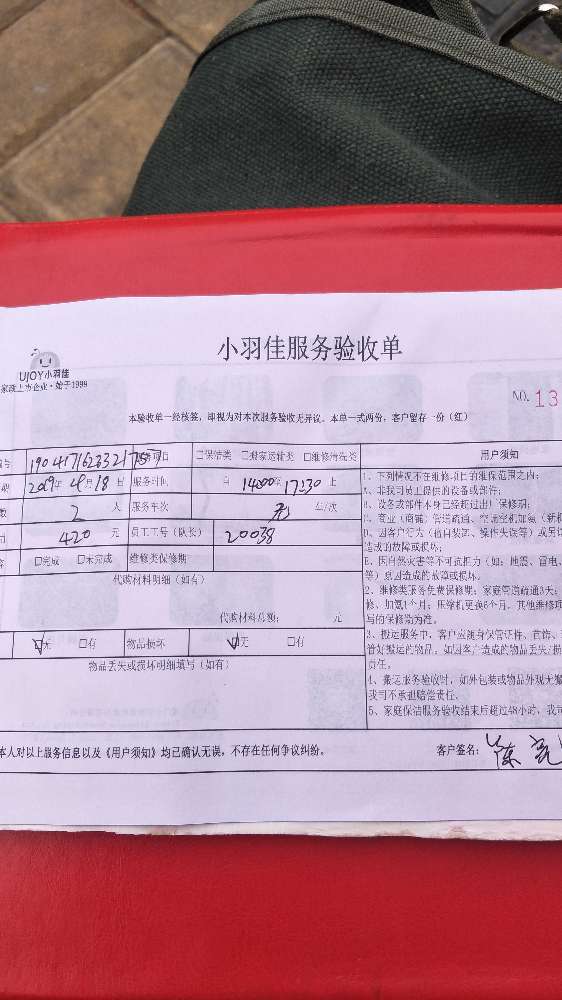 UJOY小羽佳
家政上市企业·始于1999
小羽佳服务验收单
NO. 13
本验收单一经核签,即视为对本次服务验收无异议。本单一式两份,客户留存一份(红)
项目 □保洁类 □搬家运输类 □维修清洗类 用户须知
2019年 4月 18日 服务时间 自 14:00至 17:30 止
2 人 服务车次 车/次
420 元 员工工号(队长) 20038
□完成 □未完成 维修类保修期
代购材料明细(如有)
代购材料总额: 元
☑无 □有 物品损坏 ☑无 □有
物品丢失或损坏明细填写(如有)
1、下列情况不在维修项目的维保范围之内:
A、非我司员工提供的设备或部件;
B、设备或部件本身已经超过出厂保修期;
C、商业(商铺)管道疏通、空调空机加氟(新机
D、因客户行为(擅自装卸、操作失误等)或另
造成的故障或损坏;
E、因自然灾害等不可抗拒力(如:地震、雷电、
等)原因造成的故障或损坏。
2、维修类服务免费保修期:家庭管道疏通3天;
修、加氟1个月;压缩机更换6个月,其他维修项
写的保修勤为准。
3、搬运服务中,客户应随身保管证件、首饰、
管好搬运的物品。如因客户造成的物品丢失/损
责任。
4、搬运服务验收时,如外包装或物品外观无
我司不承担赔偿责任。
5、家庭保洁服务验收结束后超过48小时,我
本人对以上服务信息以及《用户须知》均已确认无误,不存在任何争议纠纷。 客户签名: 陈